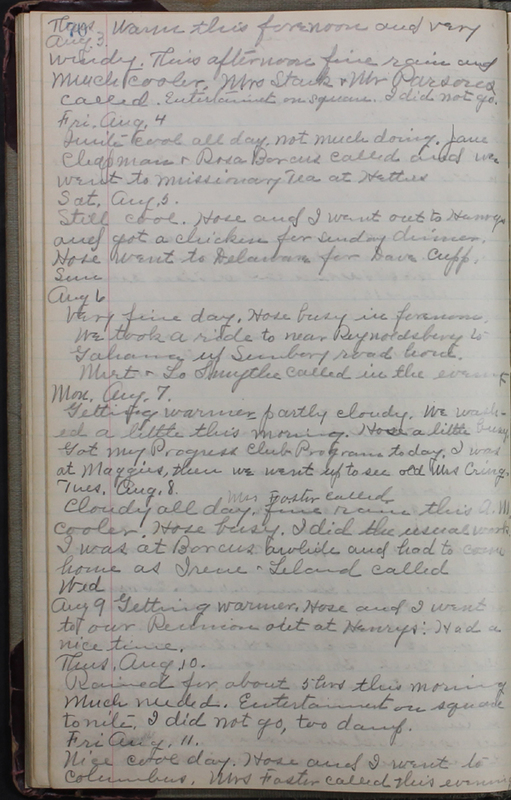 Thurs 70 Warm this forenoon and very
Aug 3.
windy. This afternoon fine rain and
much cooler. Mrs Stark & Mr Parsons
called. Entertainment on square. I did not go.
Fri. Aug, 4
Quite cool all day. not much doing. Jane
Chapman & Rosa Borcus called and we
went to missionary Tea at Hetties
Sat. Aug, 5.
Still cool. Hose and I went out to Henrys
and got a chicken for Sunday dinner.
Hose went to Delaware for Dave Cupp.
Sun
Aug 6
Very fine day. Hose busy in forenoon.
We took a ride to near Reynoldsberg to
Gahanna up Sunbery road home.
Mert & Lo Smythe called in the evening
Mon. Aug. 7.
Getting warmer partly cloudy. We wash-
ed a little this morning. Hose a little busy
Got my Progress Club Programs today. I was
at Maggies, then we went up to see old Mrs
Tues. Aug. 8.
Mrs Foster called
Cloudy all day. fine rain this A.M.
cooler. Hose busy. I did the usual work.
I was at Borcus awhile and had to come
home as Irene & Leland called
Wed
Aug 9 Getting warmer. Hose and I went
to our Reunion out at Henrys. Had a
nice time.
Thus, Aug. 10.
Rained for about 5 hrs this morning
much needed. Entertainment on square
tonite. I did not go, too damp.
Fri Aug. 11.
Nice cool day. Hose and I went to
Columbus. Mrs Foster called this evening